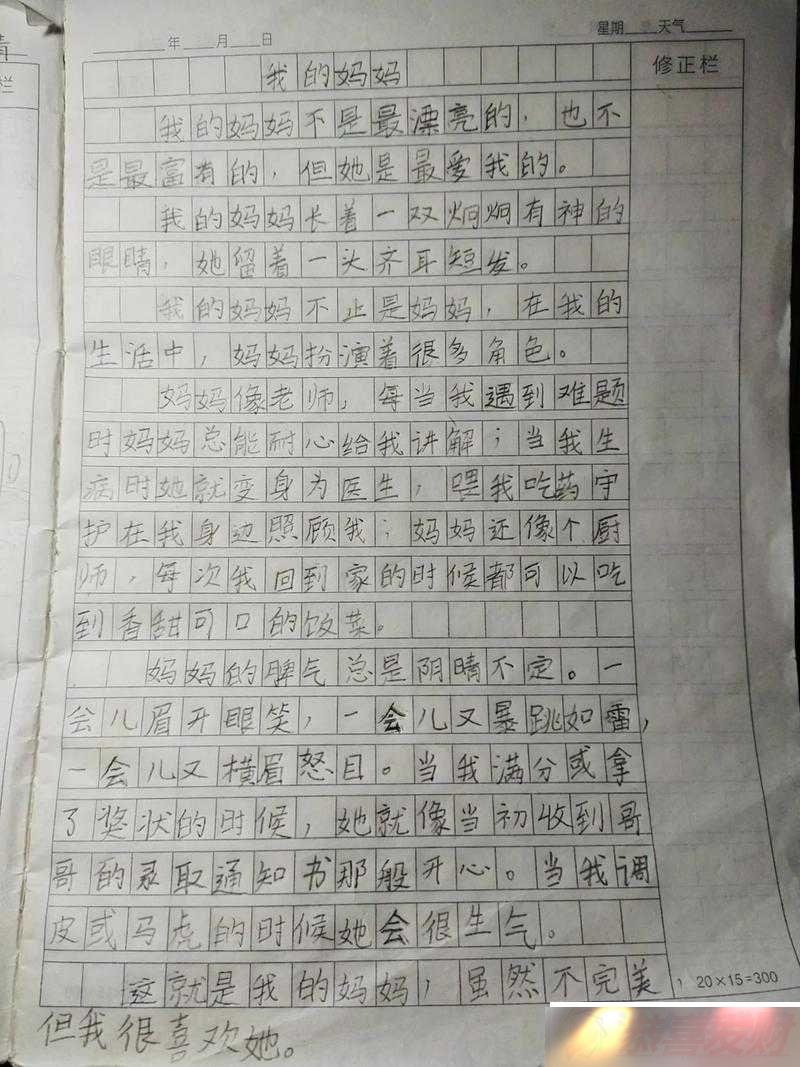 年 月 日 星期 天气
我的妈妈 修正栏
我的妈妈不是最漂亮的，也不
是最富有的，但她是最爱我的。
我的妈妈长着一双炯炯有神的
眼睛，她留着一头齐耳短发。
我的妈妈不止是妈妈，在我的
生活中，妈妈扮演着很多角色。
妈妈像老师，每当我遇到难题
时妈妈总能耐心给我讲解；当我生
病时她就变身为医生，喂我吃药守
护在我身边照顾我；妈妈还像个厨
师，每次我回到家的时候都可以吃
到香甜可口的饭菜。
妈妈的脾气总是阴晴不定。一
会儿眉开眼笑，一会儿又暴跳如雷，
一会儿又横眉怒目。当我满分或拿
了奖状的时候，她就像当初收到哥
哥的录取通知书那般开心。当我调
皮或马虎的时候她会很生气。
这就是我的妈妈，虽然不完美，
20×15=300
但我很喜欢她。